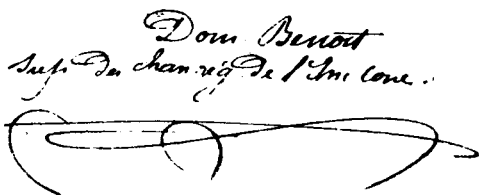 Dom Benoit
Sup. des chan. rég. de l'Im. Conc.